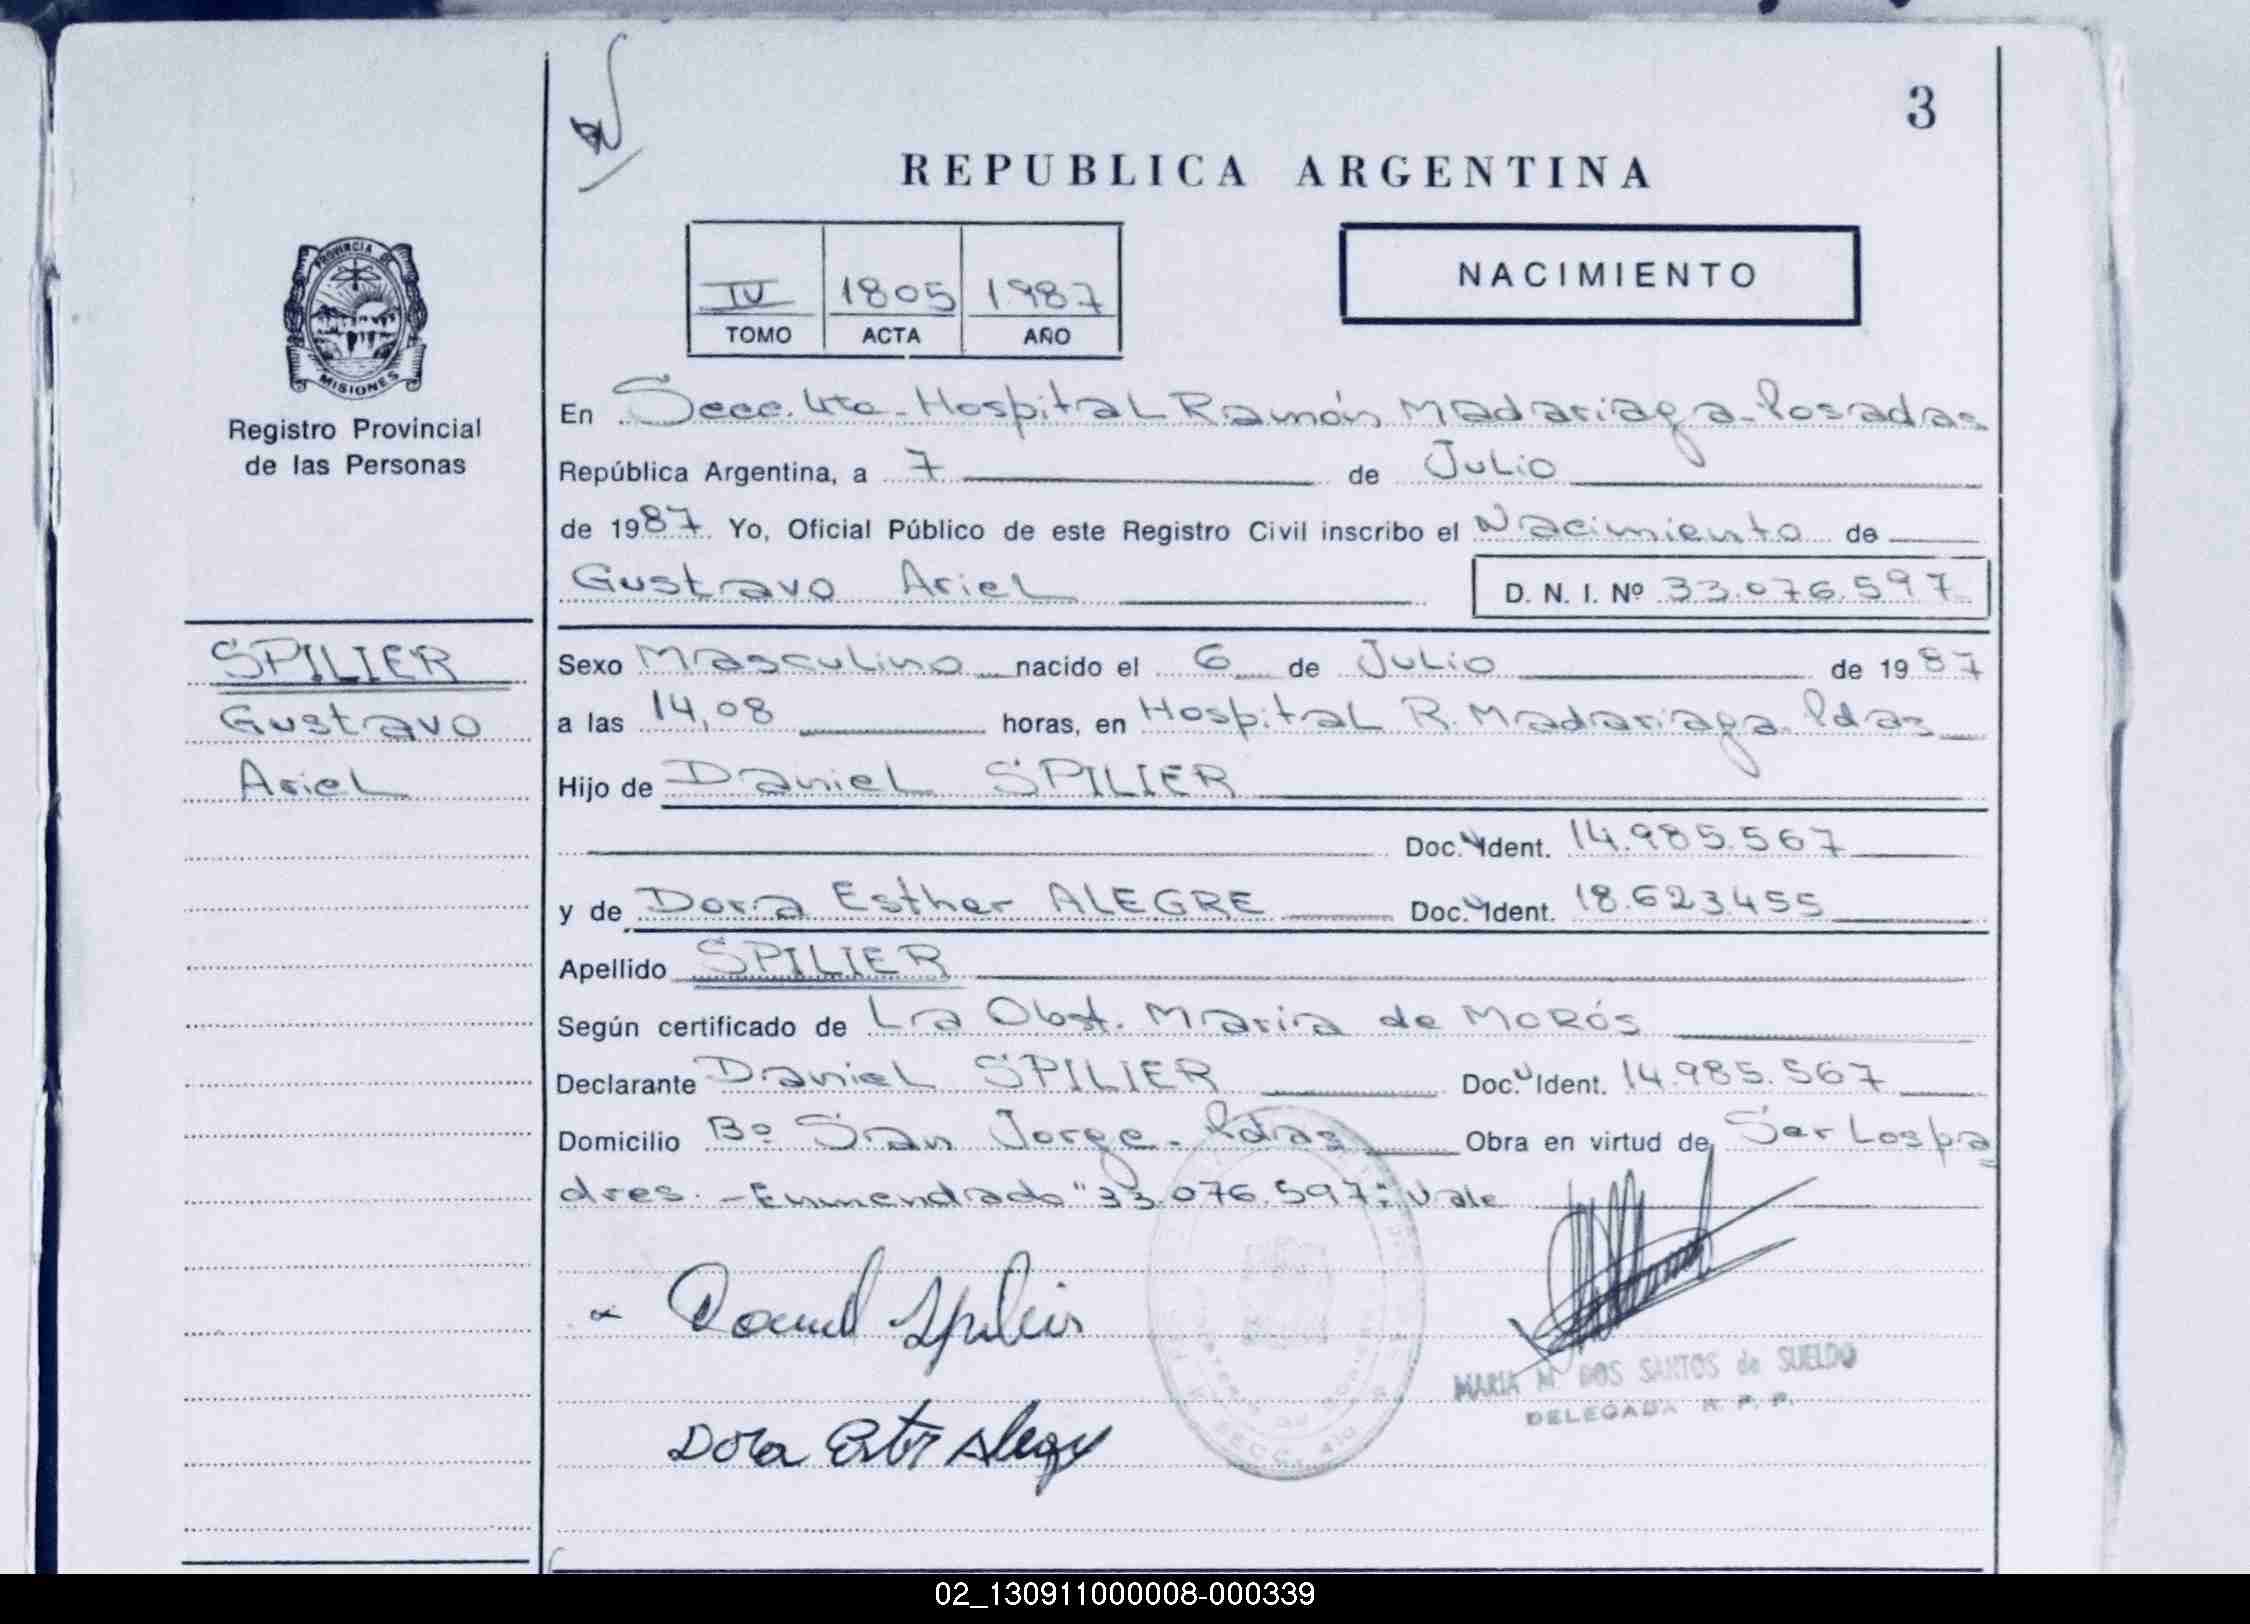 3
REPUBLICA ARGENTINA
IV 1805 1987
TOMO ACTA AÑO
NACIMIENTO
PROVINCIA DE
MISIONES
Registro Provincial
de las Personas
En Secc. 4ta - Hospital Ramón Madariaga - Posadas
República Argentina, a 7 de Julio
de 1987. Yo, Oficial Público de este Registro Civil inscribo el Nacimiento de
Gustavo Ariel D. N. I. Nº 33.076.597
SPILIER
Gustavo
Ariel
Sexo Masculino nacido el 6 de Julio de 1987
a las 14,08 horas, en Hospital R. Madariaga. Pdas
Hijo de Daniel SPILIER
Doc. Ident. 14.985.567
y de Dora Esther ALEGRE Doc. Ident. 18.623455
Apellido SPILIER
Según certificado de La Obst. Maria de MORós
Declarante Daniel SPILIER Doc. Ident. 14.985.567
Domicilio Bº San Jorge. Pdas Obra en virtud de Ser Los pa
dres. - Enmendado "33.076.597": Vale
Daniel Spilier
Dora Ester Alegre
MARIA M. DOS SANTOS de SUELDO
DELEGADA R. P. P.
02_130911000008-000339